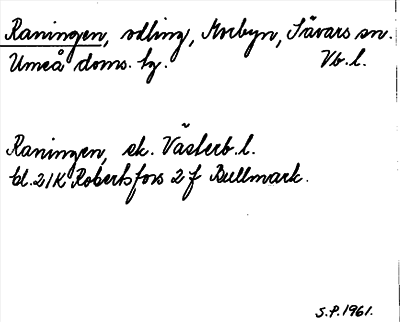 Raningen, odling, Krokbyn, Sävars sn.
Umeå doms. hg. Vb. l.
Raningen, ek. Västerb. l.
bl. 21K Robertsfors 2 f Bullmark.
S.P. 1961.